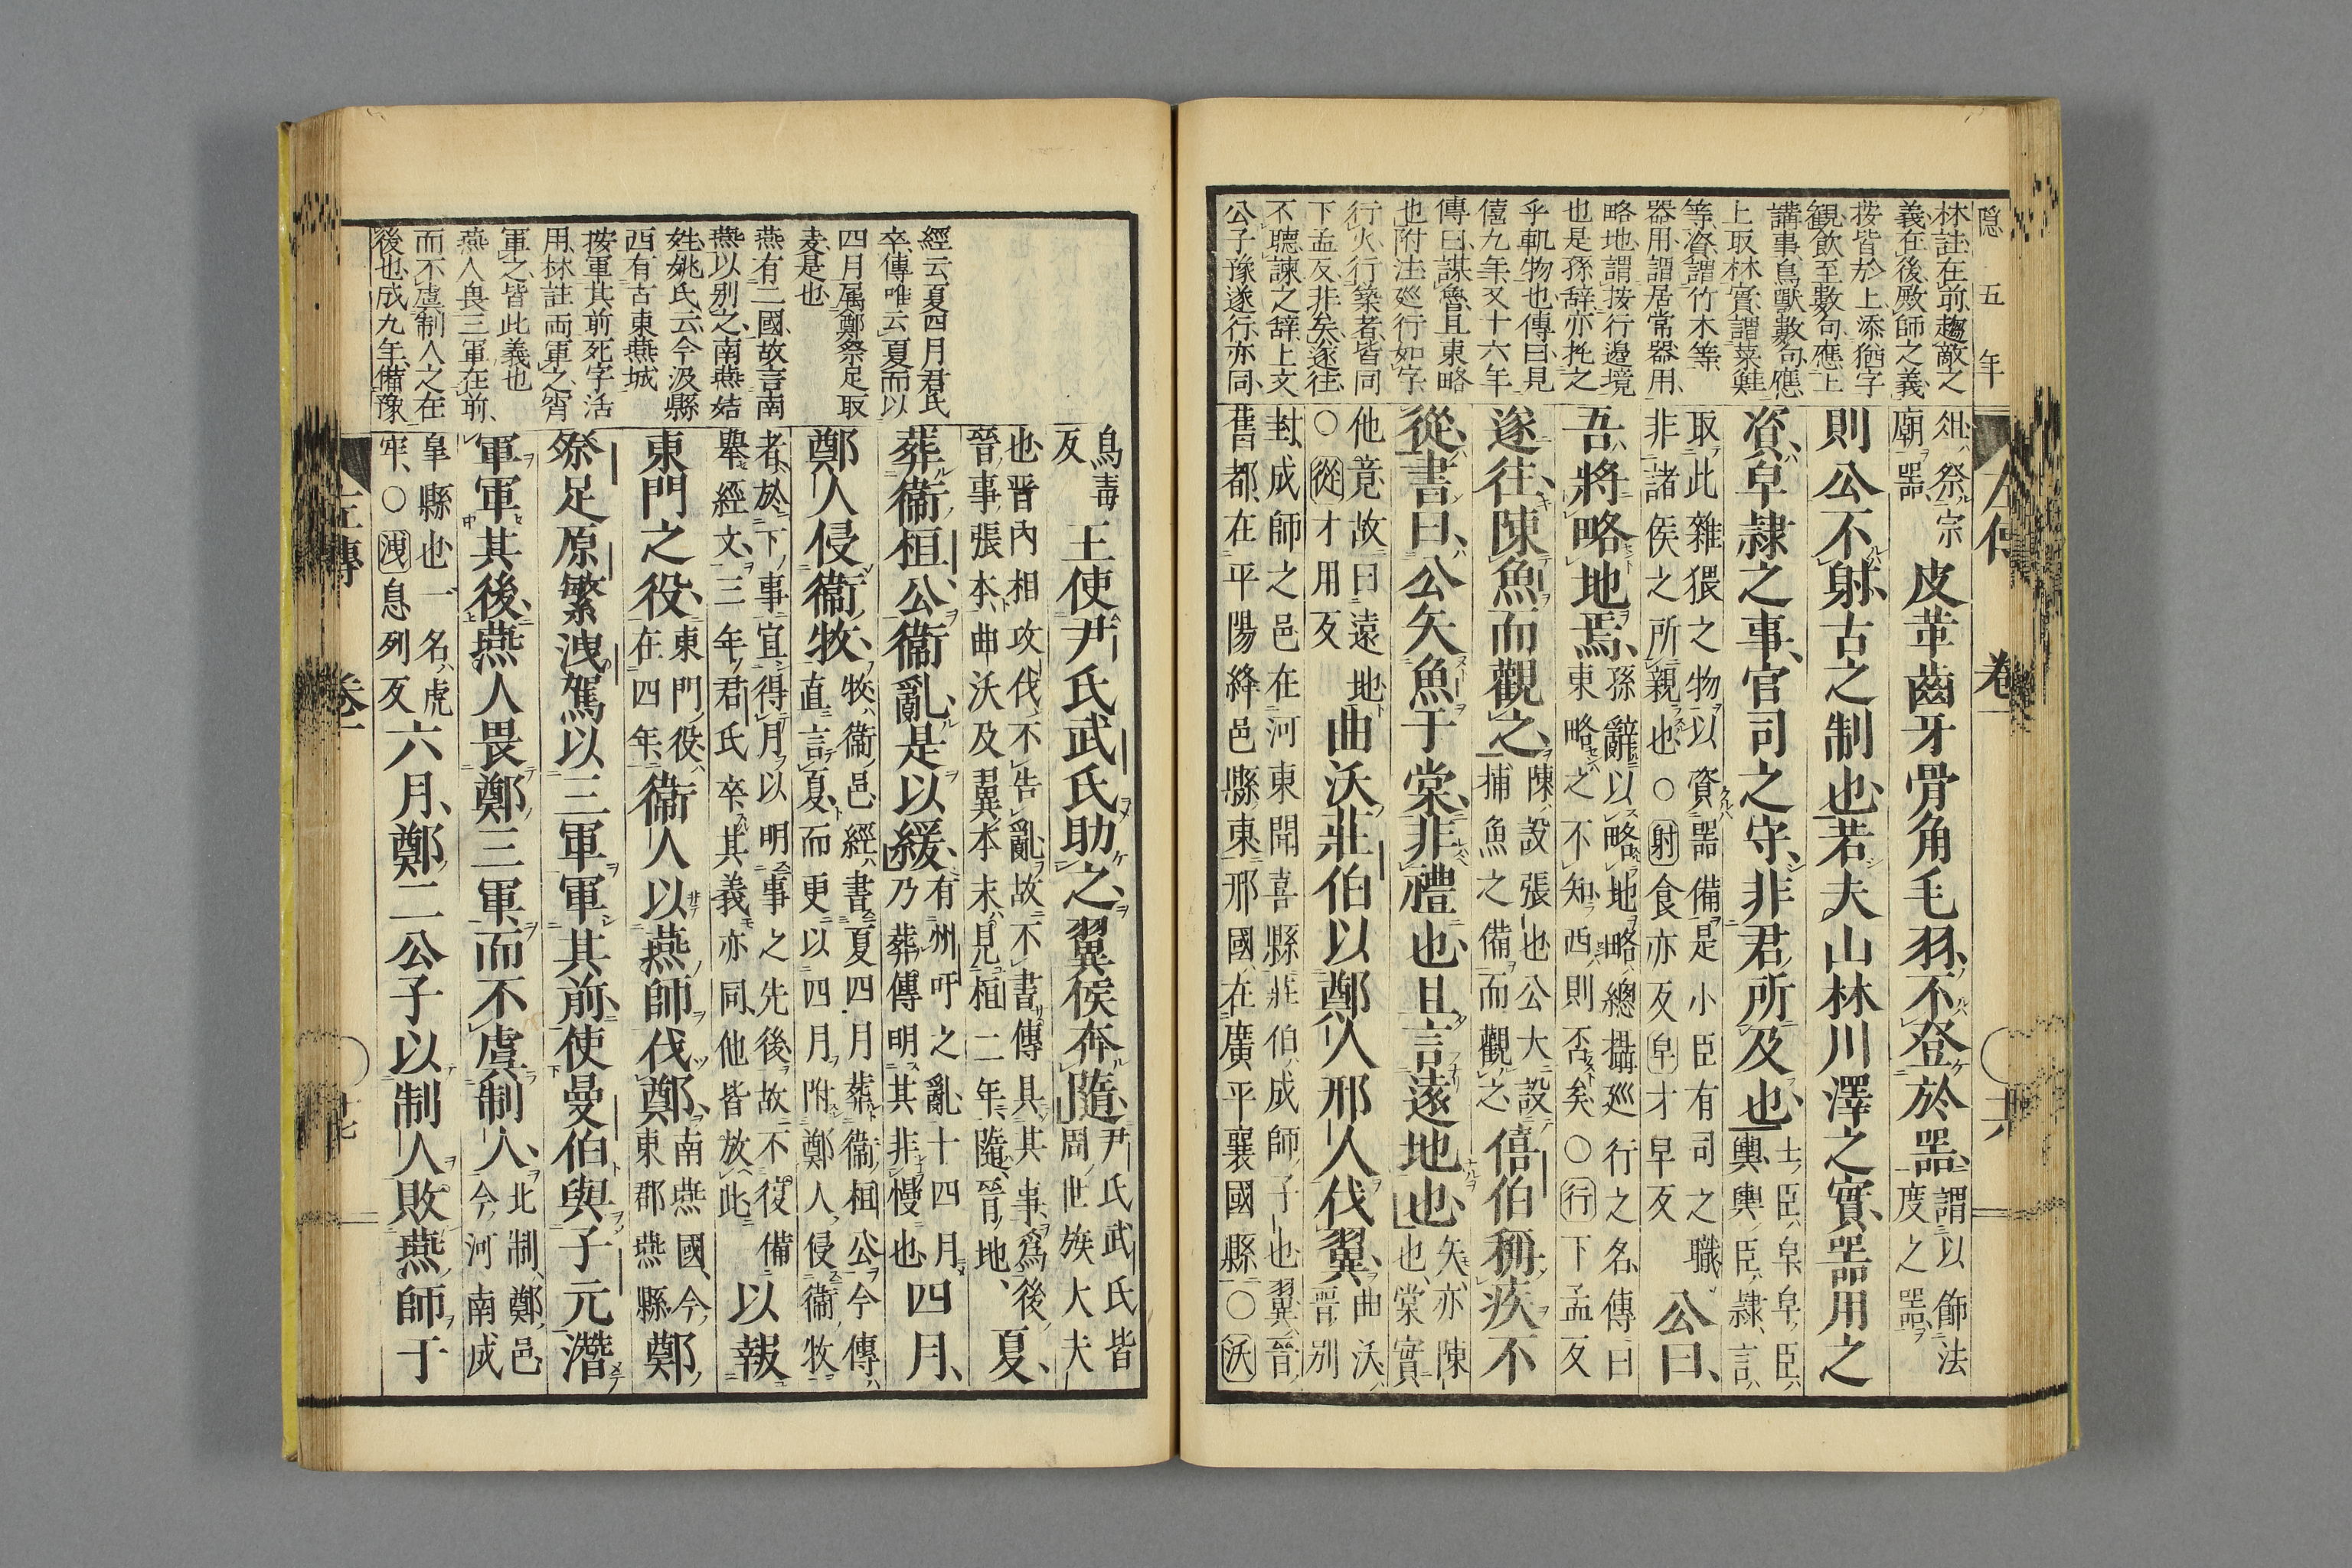 隠五年
左傳 卷一
林註在前趨敵之
義在後殿師之義
按皆於上添猶字
觀飲至數句應上
講事鳥獸數句應
上取林實謂菜
等資謂竹木等
器用謂居常器用
略地謂按行邊境
也是孫辞亦托之
乎軌物也傳曰見
僖九年又十六年
傳曰謀魯且東略
也附注巡行如字
行火行築者皆同
下孟反非矣遂往
不聽諫之辞上文
公子豫遂行亦同
俎祭宗
廟器
皮革齒牙骨角毛羽不登於器
謂以飾法
度之器
則公不射古之制也若夫山林川澤之實器用之
資皁隷之事官司之守非君所及也
士臣皁皁臣
輿輿臣隷言
取此雜猥之物以資器備是小臣有司之職
非諸侯之所親也○射食亦反皁才早反
公曰
吾將略地焉
孫辭以略地略總攝巡行之名傳曰
東略之不知西則否矣○行下孟反
遂往陳魚而觀之
陳設張也公大設
捕魚之備而觀之
僖伯稱疾不
從書曰公矢魚于棠非禮也且言遠地也
矢亦陳
也棠實
他竟故曰遠地
○從才用反
曲沃莊伯以鄭人邢人伐翼
曲沃
晉別
封成師之邑在河東聞喜縣莊伯成師子也翼晉
舊都在平陽絳邑縣東邢國在廣平襄國縣○沃
經云夏四月君氏
卒傳唯云夏而以
四月属鄭祭足取
麦是也
燕有二國故言南
燕以别之南燕姞
姓姚氏云今汲縣
西有古東燕城
按軍其前死字活
用林註両軍之宵
軍之皆此義也
燕人畏三軍在前
而不虞制人之在
後也成九年備豫
烏毒
反
王使尹氏武氏助之翼侯奔隨
尹氏武氏皆
周世族大夫
也晋內相攻伐不告亂故不書傳具其事爲後
晉事張本曲沃及翼本末見桓二年隨晉地
夏
葬衞桓公衞亂是以緩
有州吁之亂十四月
乃葬傳明其非慢也
四月
鄭人侵衞牧
牧衞邑經書夏四月葬衞桓公今傳
直言夏而更以四月附鄭人侵衞牧
者於下事宜得月以明事之先後故不復備
舉經文三年君氏卒其義亦同他皆放此
以報
東門之役
東門役
在四年
衞人以燕師伐鄭
南燕國今
東郡燕縣
鄭
祭足原繁洩駕以三軍軍其前使曼伯與子元潛
軍軍其後燕人畏鄭三軍而不虞制人
北制鄭邑
今河南成
皐縣也一名虎
牢○洩息列反
六月鄭二公子以制人敗燕師于
左傳 卷一